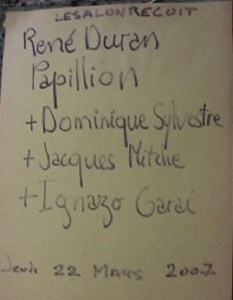 LESALONRECOIT
René Duran
Papillion
+Dominique Sylvestre
+Jacques Mitche
+Ignazo Garai
Jeudi 22 Mars 2007